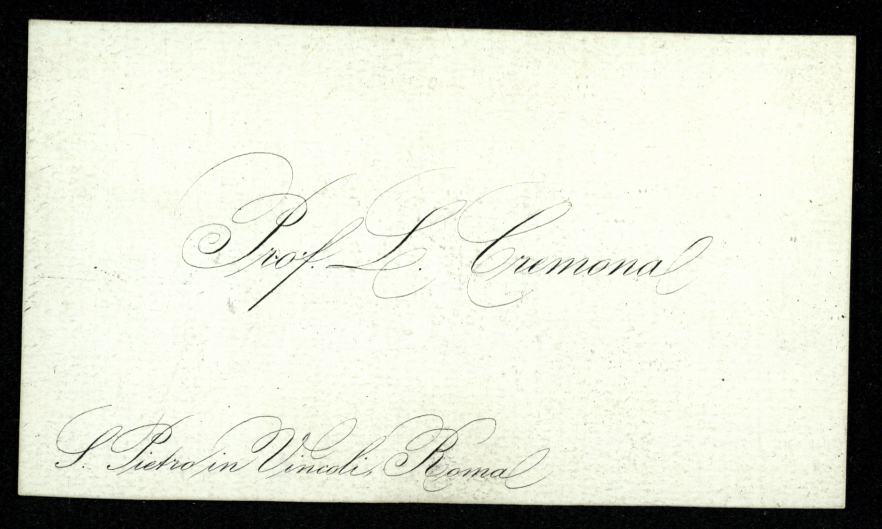 Prof. L. Cremona
S. Pietro in Vincoli, Roma